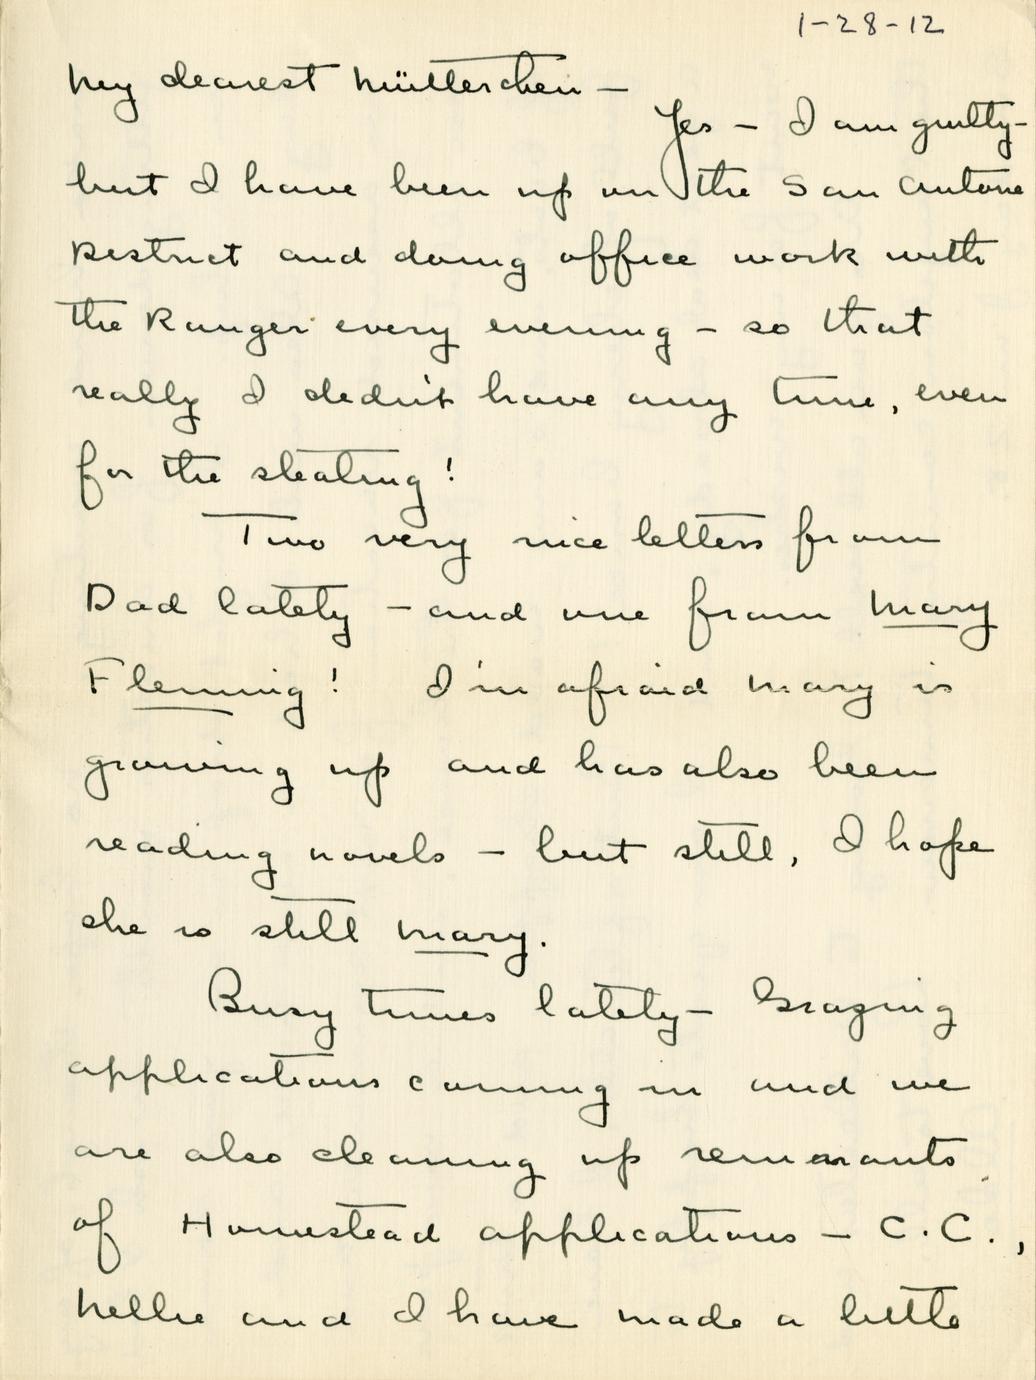 1-28-12
My dearest Mütterchen -
Yes - I am guilty-
but I have been up on the San Antone
District and doing office work with
the Ranger every evening - so that
really I didn't have any time, even
for the skating!
Two very nice letters from
Dad lately - and one from Mary
Fleming! I'm afraid Mary is
growing up and has also been
reading novels - but still, I hope
she is still Mary.
Busy times lately - Grazing
applications coming in and we
are also cleaning up remnants
of Homestead applications - C.C.,
Nellie and I have made a little